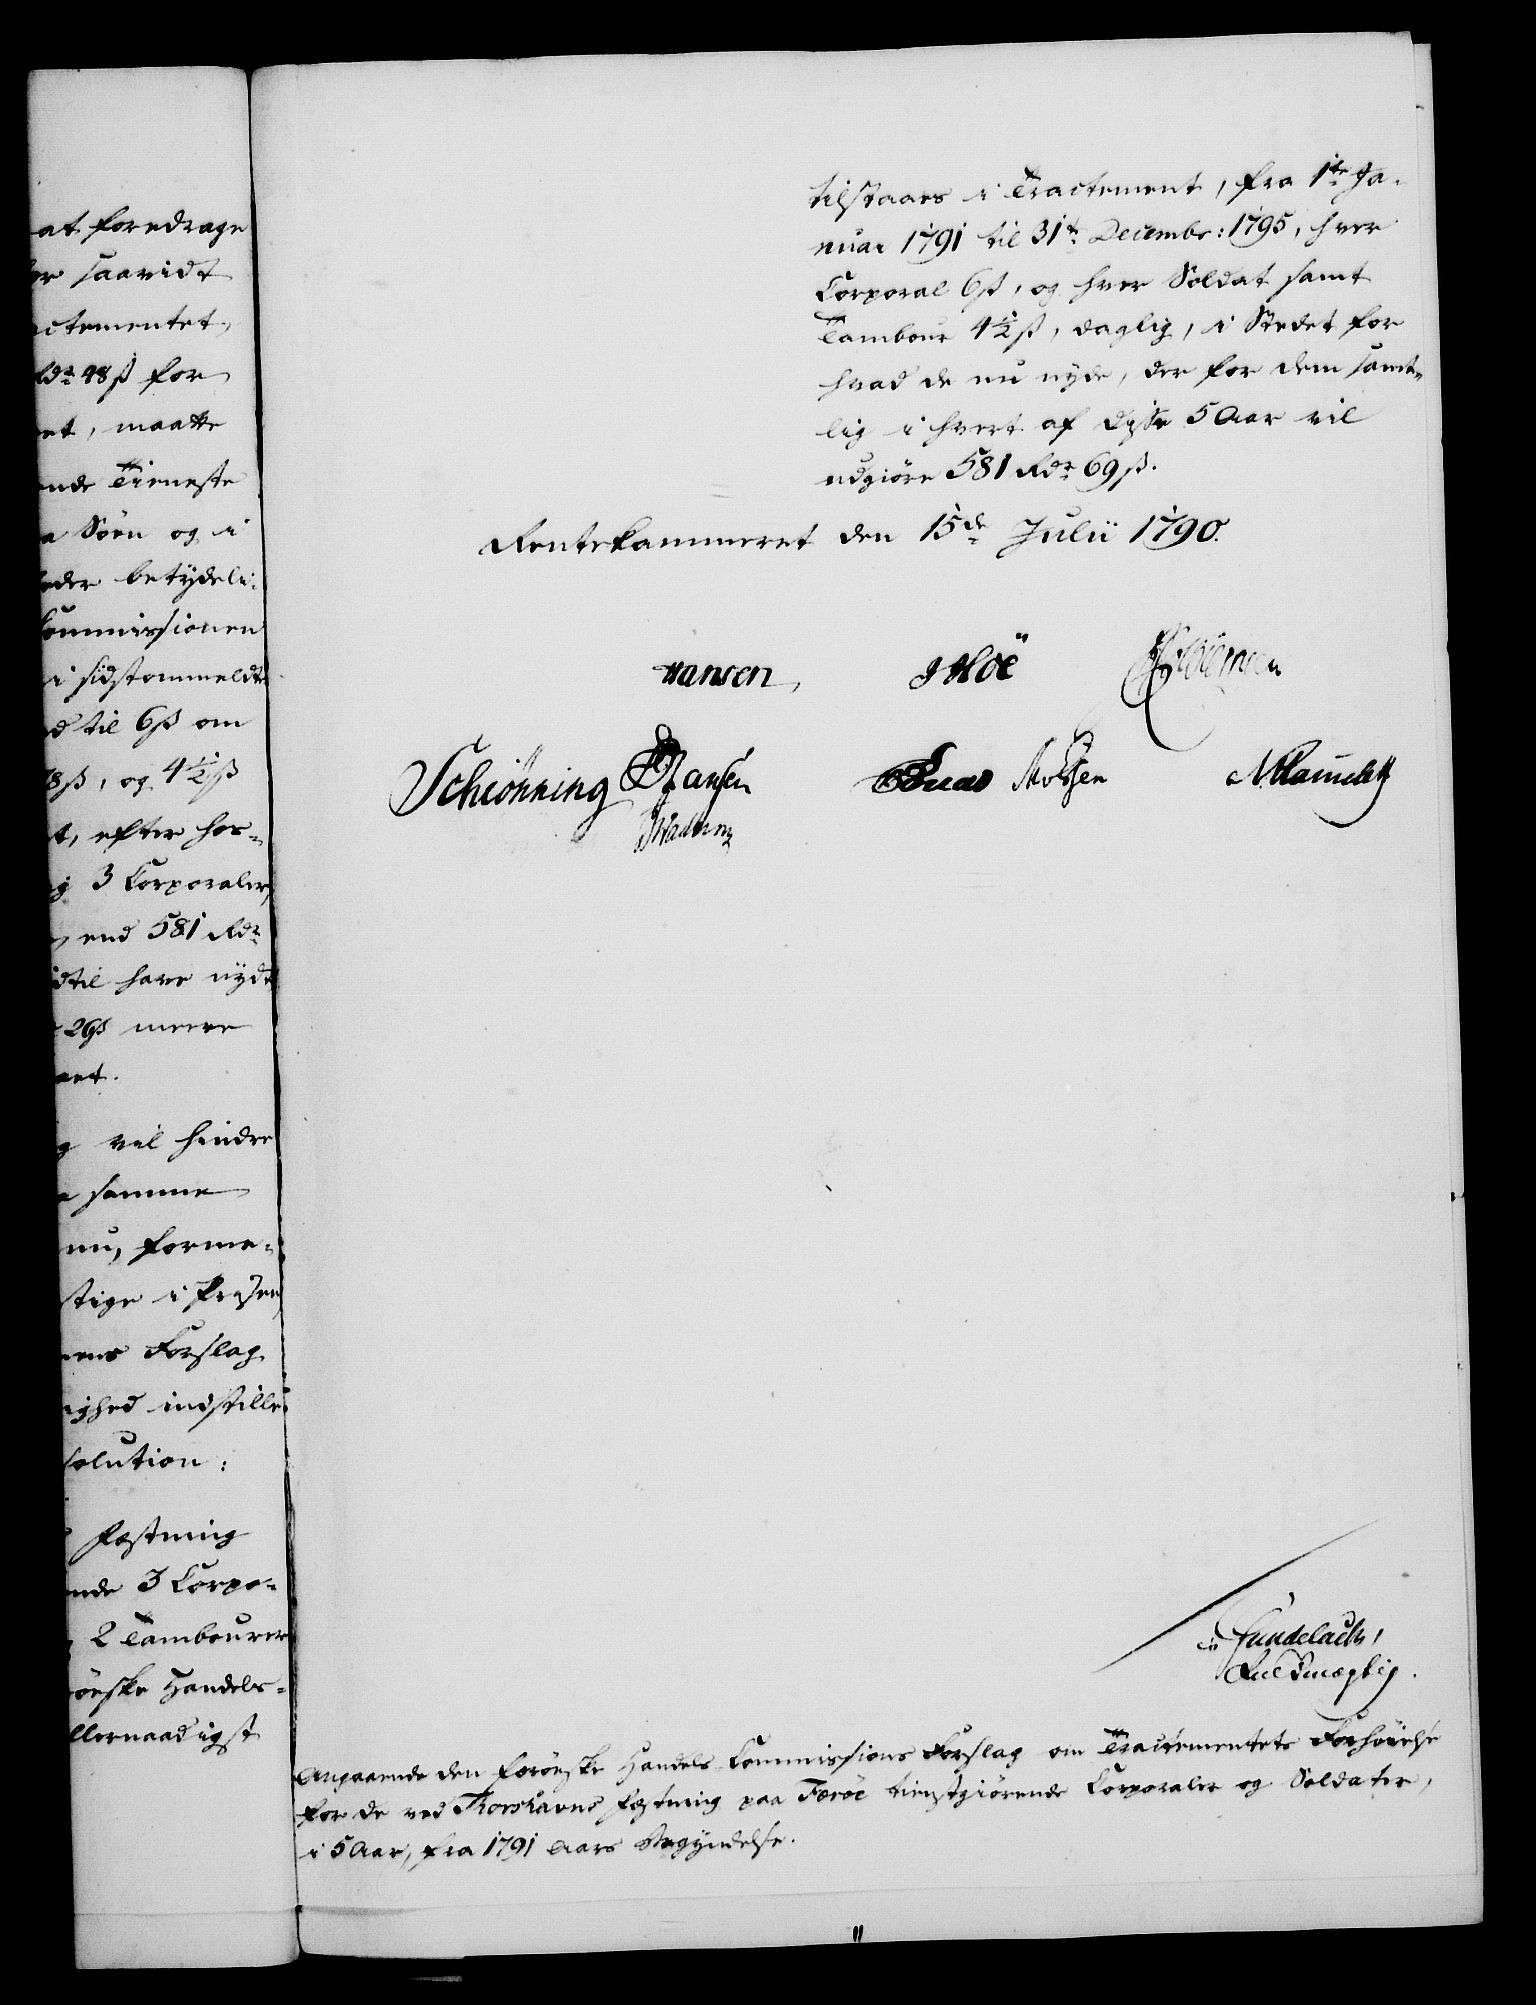 at foredrage
saavidt
actementet,
48 ß for
et, maatte
ende Tieneste
Söen og i
eder betÿdeli-
Commissionen
i sidstommeldte
til 6 ß om
8 ß, og 4½ ß
t, efter hos-
3 Corporaler,
end 581 Rdr
dtil have nÿdt
26 ß meere
aret.
vil hindre
samme
nu, forme-
stige i Prisen
nens Forslag
ighed indstille
solution:
Fæstning
ende 3 Corpo-
2 Tambourer
röeske Handels-
llernaadigst
tilstaaes i Tractement, fra 1te Ja-
nuar 1791 til 31te Decembr: 1795, hver
Corporal 6 ß, og hver Soldat samt
Tambour 4½ ß, daglig, i Stedet for
hvad de nu nÿde, der for dem samt-
lig i hvert af disse 5 Aar vil
udgiöre 581 Rdr 69 ß.
Rentekammeret den 15de Julii 1790.
Hansen, JHöe
Schiönning Hansen
Gundelach,
Fuldmægtig.
Angaaende den Færöeske Handels-Commissions Forslag om Tractementets Forhöielse
for de ved Thorshavns Fæstning paa Færöe tienstgiörende Corporaler og Soldater,
i 5 Aar, fra 1791 Aars Begÿndelse.